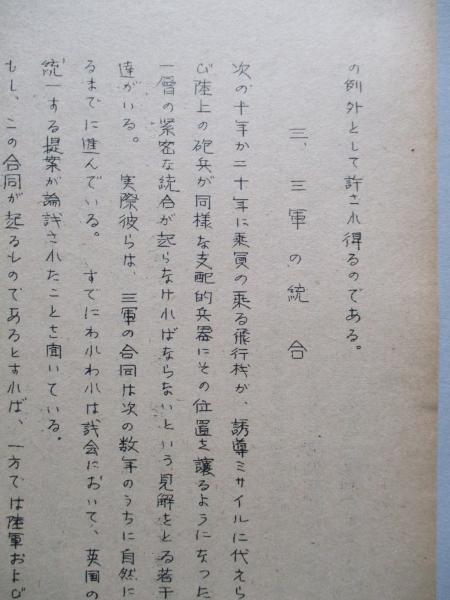 の例外として許され得るのである。
三、三軍の統合
次の十年か二十年に乗員の乗る飛行機が、誘導ミサイルに代えら
び陸上の砲兵が同様な支配的兵器にその位置を譲るようになった
一層の緊密な統合が起らなければならないという見解をとる若干
達がいる。 実際彼らは、三軍の合同は次の数年のうちに自然に
るまでに進んでいる。 すでにわれわれは議会において、英国の
統一する提案が論議されたことを聞いている。
もし、この合同が起るものであるとすれば、一方では陸軍および